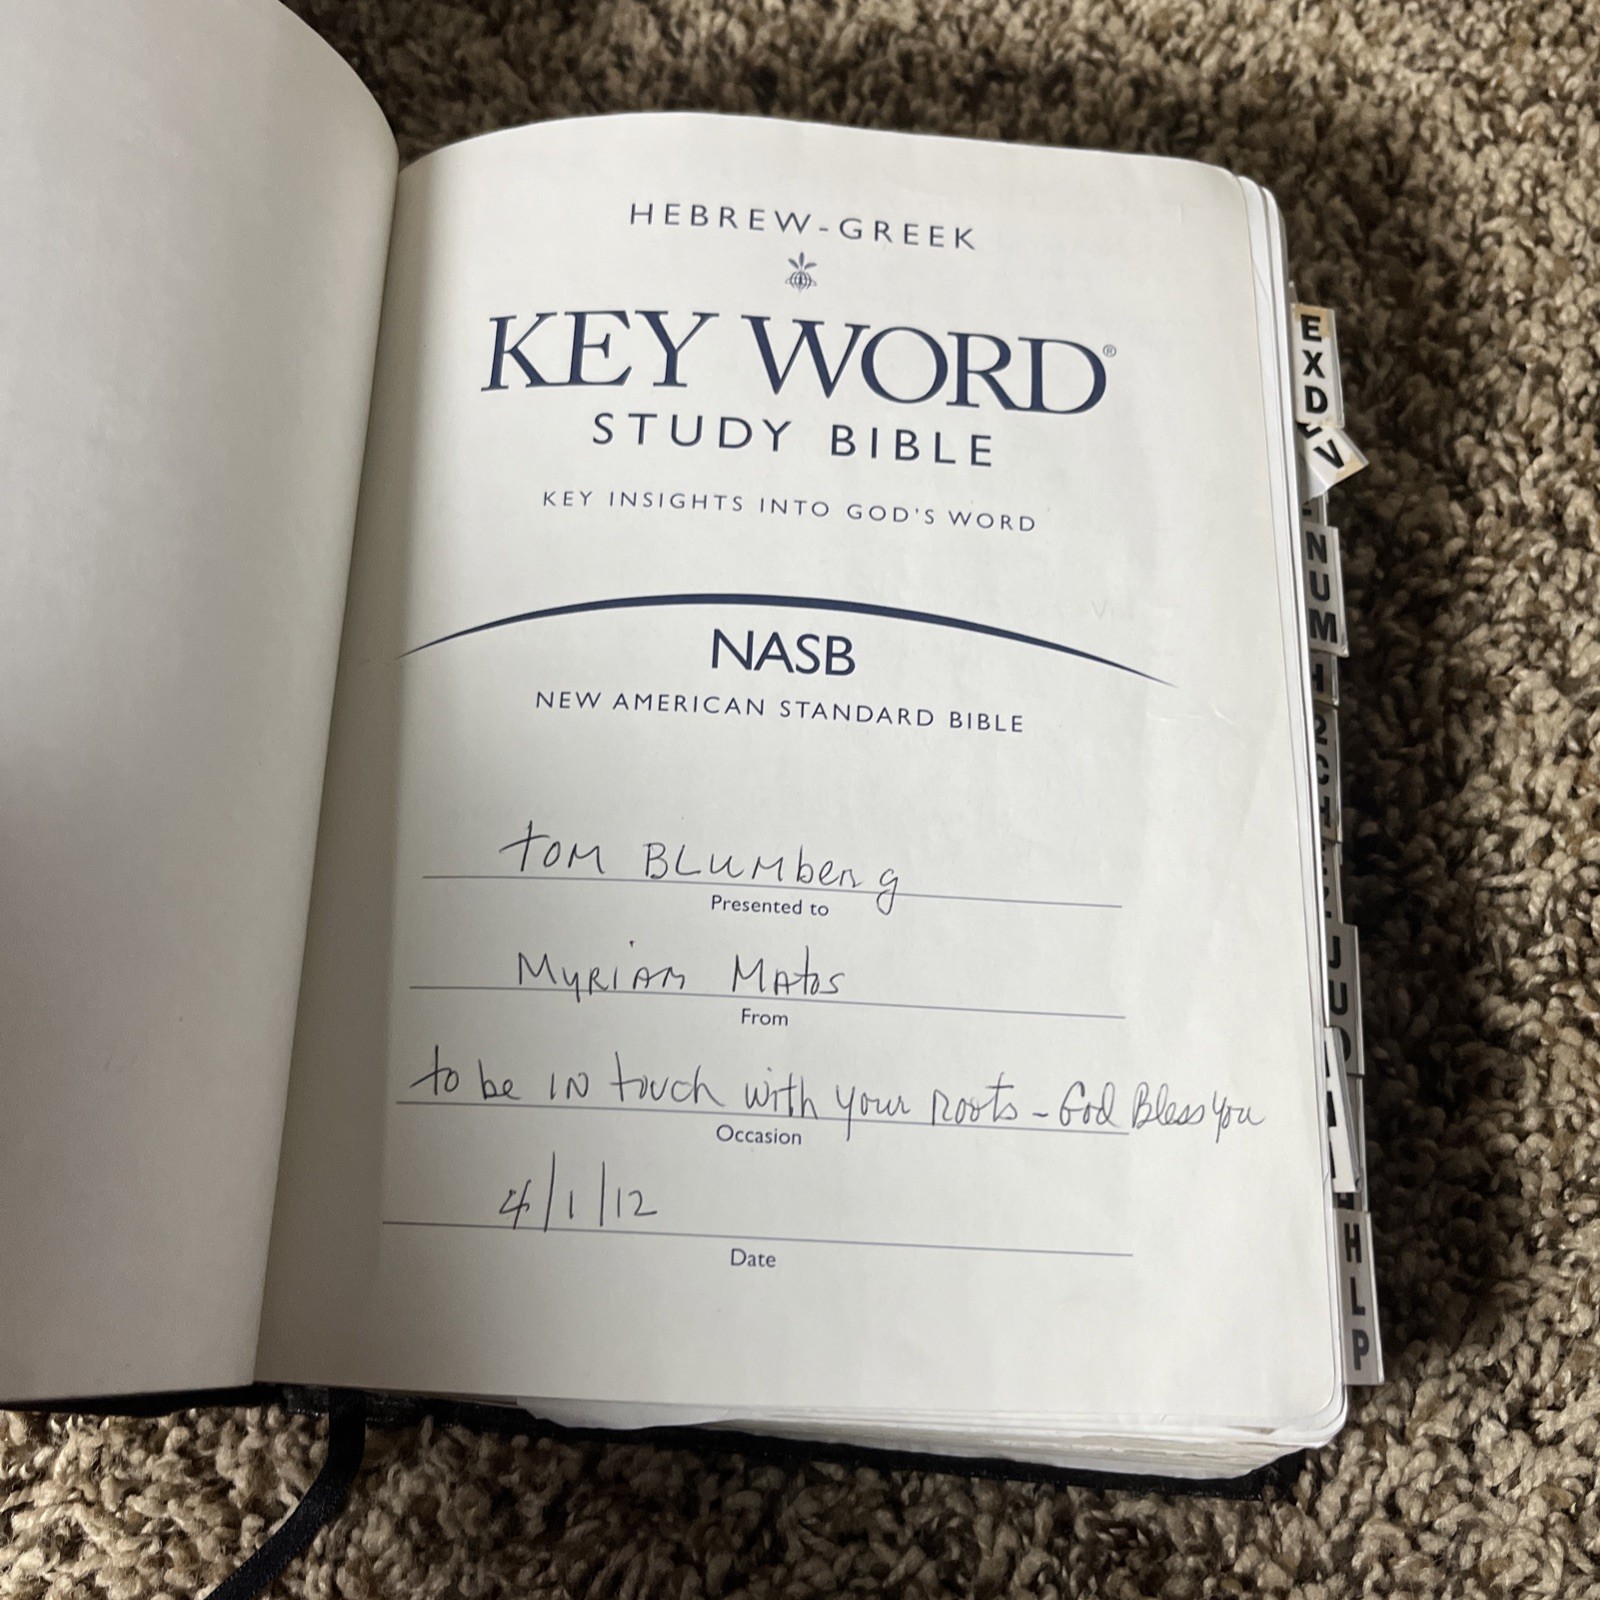 HEBREW-GREEK
KEY WORD®
STUDY BIBLE
KEY INSIGHTS INTO GOD'S WORD
NASB
NEW AMERICAN STANDARD BIBLE
TOM BLUMberg
Presented to
MYRIAM MAtos
From
to be IN touch with your roots - God Bless You
Occasion
4/1/12
Date
EXD
V
NUM
1
2CH
JU
HLP